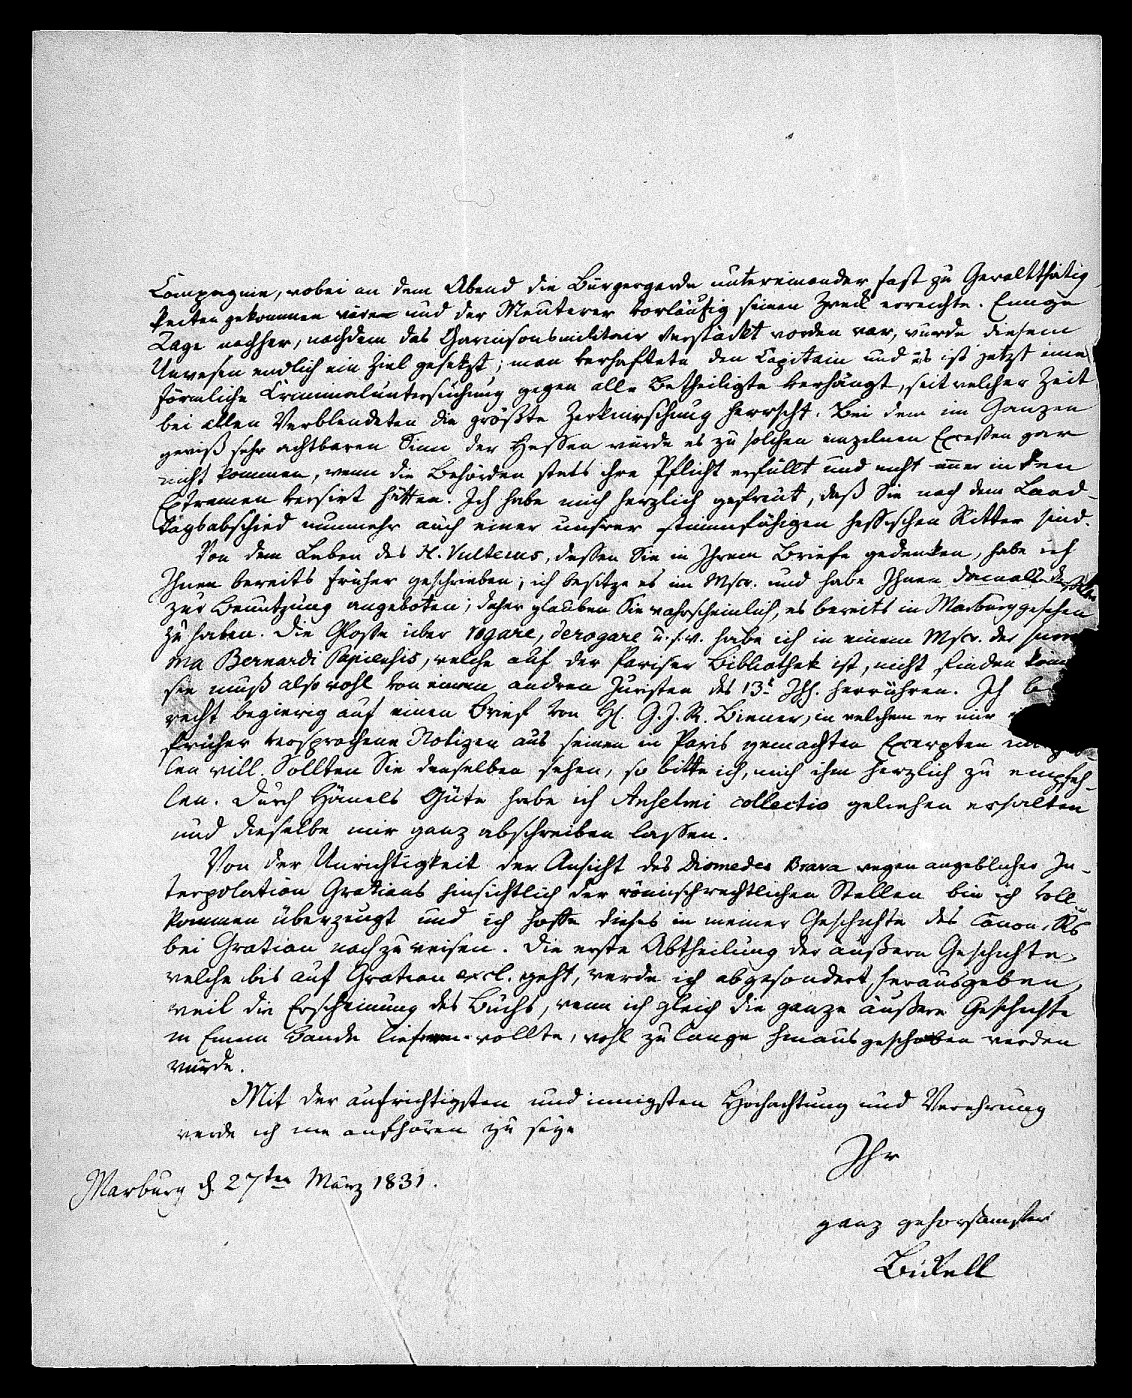 Compagnie, wobei an dem Abend die Bürgergarde untereinander fast zu Gewaltthätig-
keiten gekommen wäre und der Meuterer vorläufig seinen Zweck erreichte. Einige
Tage nachher, nachdem das Garnisonsmilitair verstärkt worden war, wurde diesem
Unwesen endlich ein Ziel gesetzt; man verhaftete den Capitain und es ist jetzt eine
förmliche Criminaluntersuchung gegen alle Betheiligte verhängt, seit welcher Zeit
bei allen Verblendeten die größte Zerknirschung herrscht. Bei dem im Ganzen
gewiß sehr achtbaren Sinn der Hessen würde es zu solchen einzelnen Excessen gar
nicht kommen, wenn die Behörden stets ihre Pflicht erfüllt und nicht immer in den
Extremen versirt hätten. Ich habe mich herzlich gefreut, daß Sie nach dem Land-
tagsabschied nunmehr auch einer unsrer stimmfähigen hessischen Ritter sind.
Von dem Leben des H. Vulteius, dessen Sie in Ihrem Briefe gedenken, habe ich
Ihnen bereits früher geschrieben; ich besitze es im Mscr. und habe Ihnen damals dasselbe
zur Benutzung angeboten; daher glauben Sie wahrscheinlich, es bereits in Marburg gesehen
zu haben. Die Glosse über rogare, derogare u.s.w. habe ich in einem Mscr. der sum-
ma Bernardi Papiensis, welche auf der Pariser Bibliothek ist, nicht finden
sie muß also wohl von einem andren Juristen des 13t Jhh. herrühren. Ich
recht begierig auf einen Brief von H. G. J. R. Biener, in welchem er mir
früher versprochene Notizen aus seinen in Paris gemachten Excerpten
len will. Sollten Sie denselben sehen, so bitte ich, mich ihm herzlich zu empfeh-
len. Durch Hänels Güte habe ich Anselmi collectio geliehen erhalten
und dieselbe mir ganz abschreiben lassen.
Von der Unrichtigkeit der Ansicht des Diomedes Brava wegen angeblicher In-
terpolation Gratians hinsichtlich der römischrechtlichen Stellen bin ich voll-
kommen überzeugt und ich hoffe dieses in meiner Geschichte des Canon. Rs
bei Gratian nachzuweisen. Die erste Abtheilung der äußern Geschichte,
welche bis auf Gratian excl. geht, werde ich abgesondert herausgeben,
weil die Erscheinung des Buchs, wenn ich gleich die ganze äußere Geschichte
in Einem Bande liefern wollte, wohl zu lange hinausgeschoben werden
würde.
Mit der aufrichtigsten und innigsten Hochachtung und Verehrung
werde ich nie aufhören zu seyn
Ihr
Marburg d. 27ten März 1831.
ganz gehorsamster
Bickell